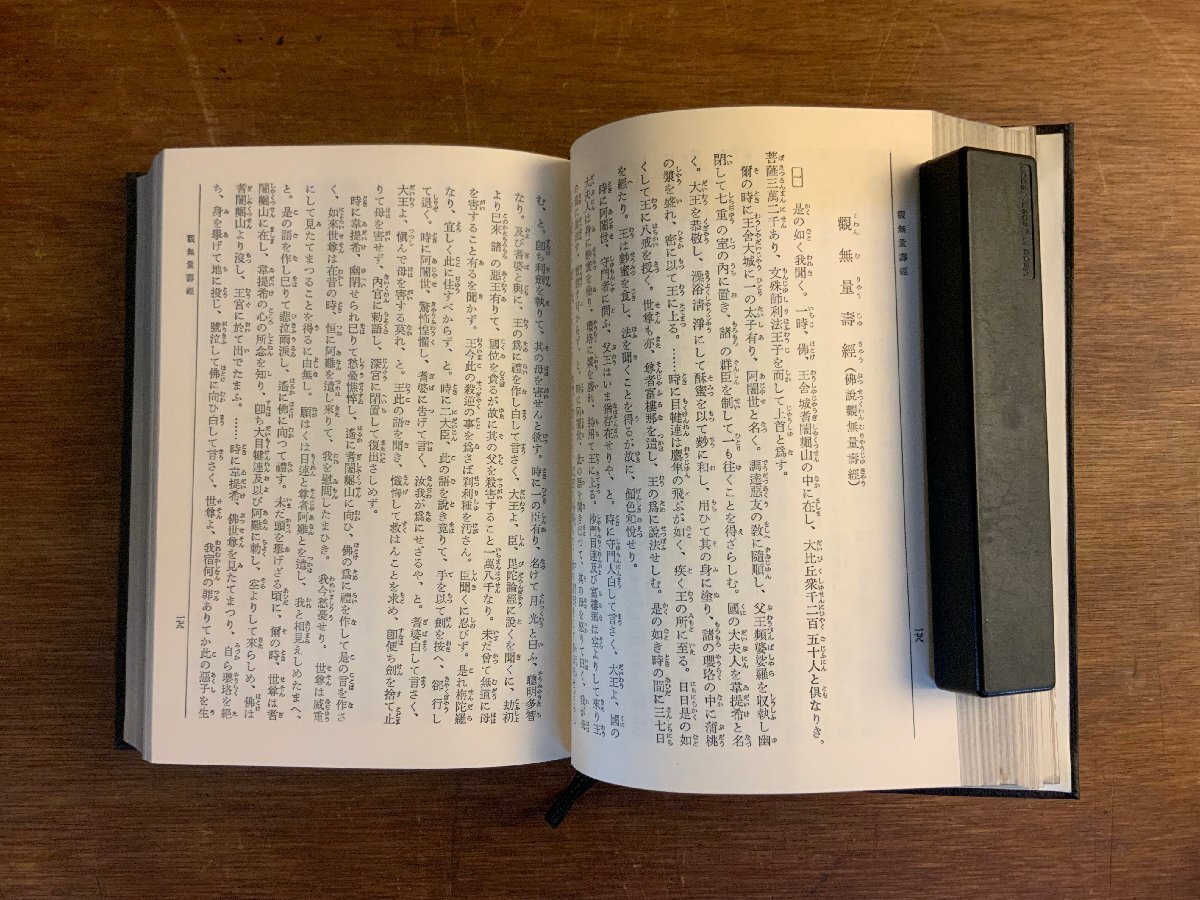 觀無量壽經
一六八
觀無量壽經(佛說觀無量壽經)
一 是の如く我聞く。一時、佛、王舍城耆闍崛山の中に在し、大比丘衆千二百五十人と倶なりき。
菩薩三萬二千あり、文殊師利法王子を而して上首と爲す。
爾の時に王舍大城に一の太子有り、阿闍世と名く。調達惡友の敎に隨順し、父王頻婆娑羅を收執し幽
閉して七重の室の内に置き、諸の群臣を制して一も往くことを得ざらしむ。國の大夫人を韋提希と名
く。大王を恭敬し、澡浴淸淨にして酥蜜を以て麨に和し、用ひて其の身に塗り、諸の瓔珞の中に蒲桃
の漿を盛れ、密に以て王に上る。……時に目犍連は鷹隼の飛ぶが如く、疾く王の所に至る。日日是の如
くして王に八戒を授く。世尊も亦、尊者富樓那を遣し、王の爲に說法せしむ。是の如き時の間に三七日
を經たり。王は麨蜜を食し、法を聞くことを得るが故に、顏色和悅せり。
時に阿闍世、守門者に問ふ、父王はいま猶存在せりや、と。時に守門人白して言さく、大王よ、國の
大夫人は身に麨蜜を塗り、瓔珞に漿を盛れ、持用て王に上る。沙門目連及び富樓那は空よりして來り王
む、と。卽ち利劍を執りて、其の母を害せんと欲す。時に一の臣有り、名けて月光と曰ふ、聰明多智
なり。及び耆婆と與に、王の爲に禮を作し白して言さく、大王よ、臣、毘陀論經に說くを聞くに、劫初
より已來諸の惡王有りて、國位を貪るが故に其の父を殺害すること一萬八千なり。未だ曾て無道に母
を害すること有るを聞かず。王今此の殺逆の事を爲さば刹利種を汚さん。臣聞くに忍びず。是れ栴陀羅
なり、宜しく此に住すべからず、と。時に二大臣、此の語を說き竟りて、手を以て劍を按へ、卻行し
て退く。時に阿闍世、驚怖惶懼し、耆婆に告げて言く、汝我が爲にせざるや、と。耆婆白して言さく、
大王よ、愼んで母を害する莫れ、と。王此の語を聞き、懺悔して救はんことを求め、卽便ち劍を捨て止
りて母を害せず、內官に勅語し、深宮に閉置して復出さしめず。
時に韋提希、幽閉せられ已りて愁憂憔悴し、遙に耆闍崛山に向ひ、佛の爲に禮を作して是の言を作さ
く、如來世尊は在昔の時、恒に阿難を遣し來りて、我を慰問したまひき。我今愁憂せり。世尊は威重
にして見たてまつることを得るに由無し。願はくは目連と尊者阿難とを遣し、我と相見えしめたまへ、
と。是の語を作し已りて悲泣雨淚し、遙に佛に向つて禮す。未だ頭を擧げざる頃に、爾の時、世尊は耆
闍崛山に在し、韋提希の心の所念を知り、卽ち大目犍連及以び阿難に勅し、空よりして來らしめ、佛は
耆闍崛山より沒し、王宮に於て出でたまふ。……時に韋提希、佛世尊を見たてまつり、自ら瓔珞を絕
ち、身を擧げて地に投じ、號泣して佛に向ひ白して言さく、世尊よ、我宿何の罪ありてか此の惡子を生
觀無量壽經
一六九